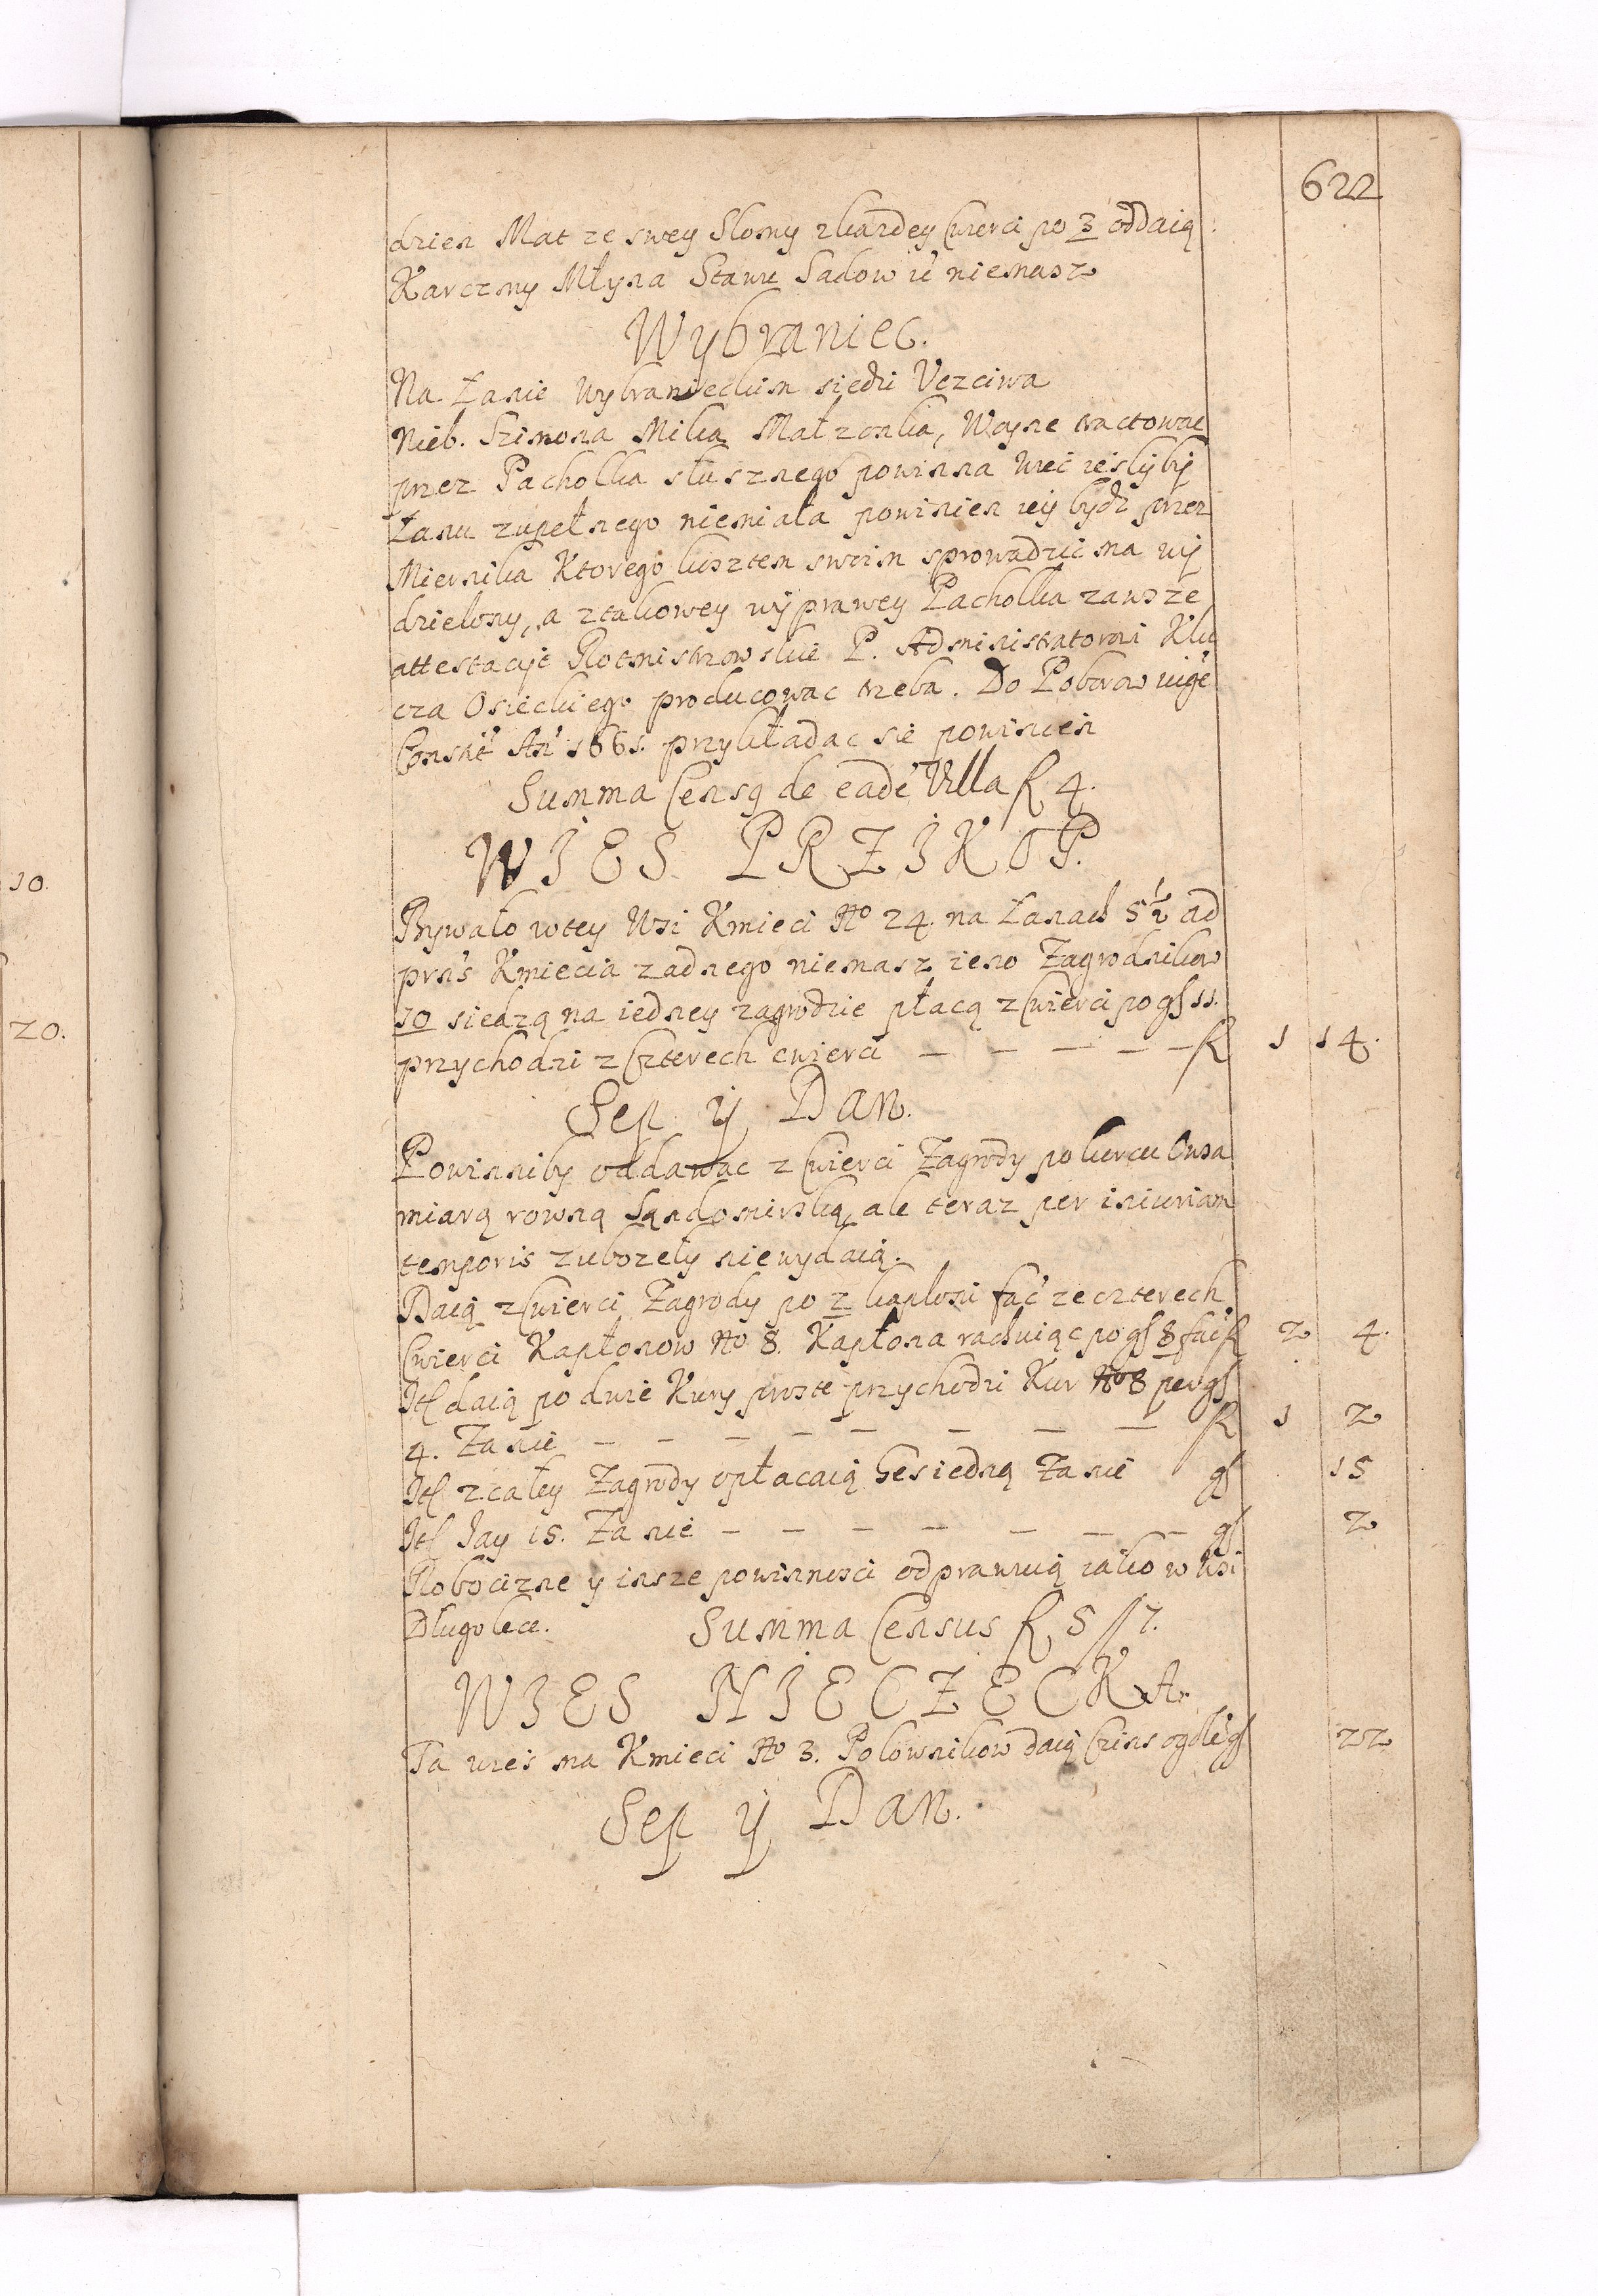 622
dzien Mat ze swey Słomy z każdey Cwierci po 3 oddaią.
Karczmy Młyna Stawu Sadow ić niemasz
Wybraniec.
Na Łanie Wybranieckim siedzi Vczciwa
Nieb. Szimona Mika Małzonka, Woyne tractowac
przez Pachołka słusznego powinna wiec ieslÿbÿ
Łanu zupełnego niemiała powinien ieÿ bÿdz przez
Miernika Ktorego kosztem swoim sprowadzić ma wÿ
dzielony, a z takowey wÿprawey Pachołka zawsze
attestacyie Rotmistrzowskie P. Administratorowi Klu
cza Osieckiego producowac trzeba. Do Poborow iuge
Constit An 1661. przykładac sie powinien
Summa Censq de eade Villa f 4.
WIES PRZIKOP.
Bywało w tey Wsi Kmieci No 24. na Łanach 5 1/2 ad
prns Kmiecia zadnego niemasz ieno Zagrodnikow
10 siedzą na iedney zagrodzie płacą z Cwierci po gs 11.
przychodzi z Czterech cwierci — — — — — f 1 14.
Sep ÿ Dan.
Powinniby oddawac z Cwierci Zagrody po korcu Owsa
miarą rowną Sandomirską, ale teraz per iniuriam
temporis zubozeły niewydaią.
Daią z Cwierci Zagrody po 2 kapłony fac ze czterech
Cwierci Kapłonow No 8. Kapłona rachuiąc po gs 8 fac f 2 4.
It daią po dwie Kury proste przychodzi Kur No 8 per gs
4. Za nie — — — — — — — — f 1 2
It z całey Zagrody opłacaią Ges iedną Za nie gs 15
It Jay 15. Za nie — — — — — — — gs 2
Robocizne y insze powinnosci odprawuią iako w Wsi
Długołece. Summa Census f 5 / 7.
WIES NIECZECKA.
Ta wies ma Kmieci No 3. Połownikow daią Czins ogółe gs 22
Sep ÿ Dan.
10.
20.